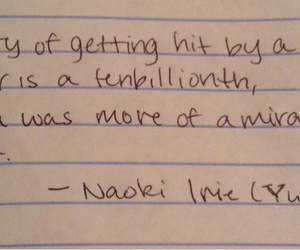 y of getting hit by a
r is a tenbillionth,
was more of a mira
.
— Naoki Irie (Yu